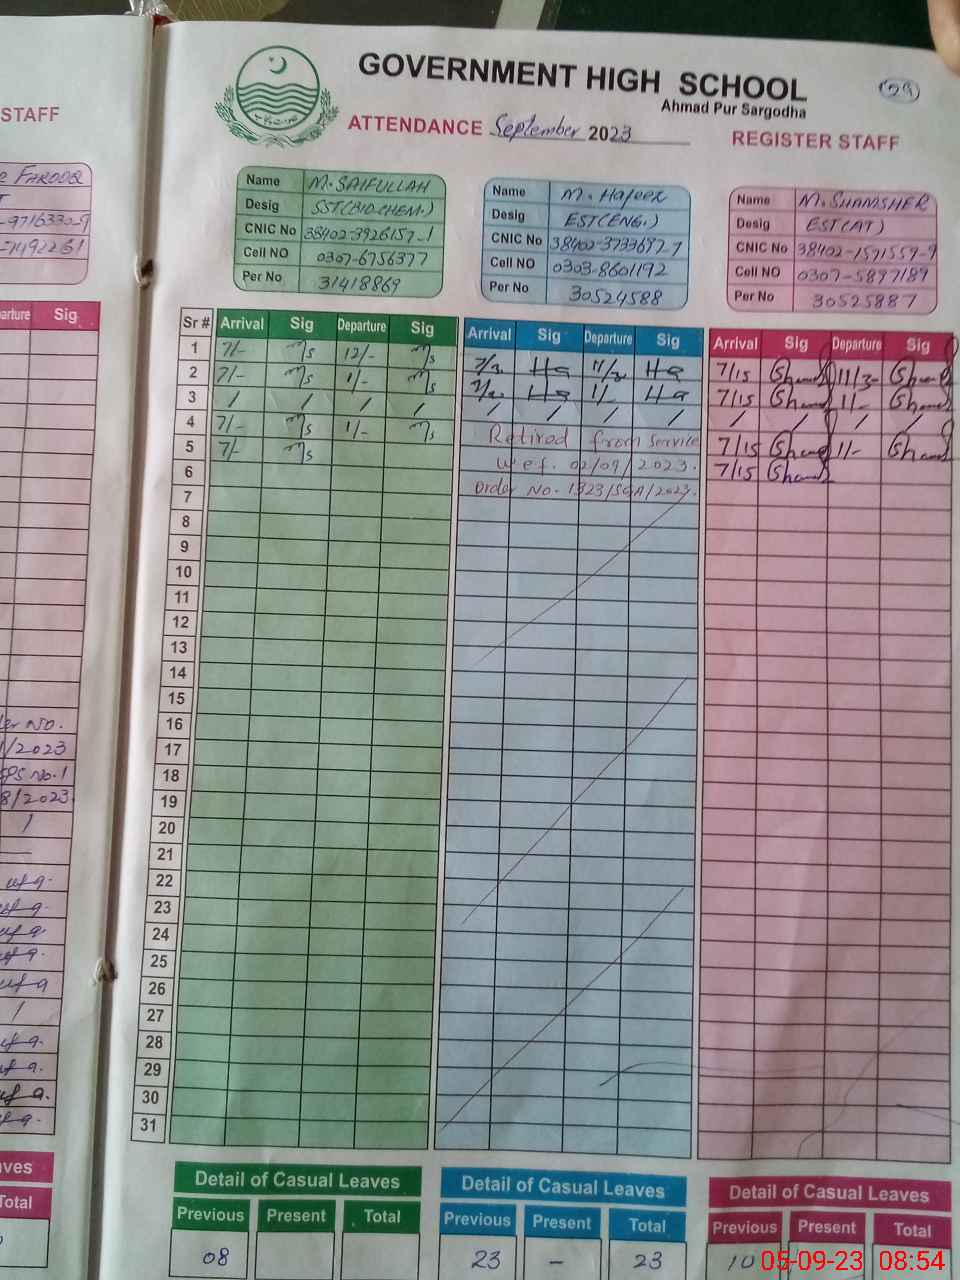 GOVERNMENT HIGH SCHOOL
Ahmad Pur Sargodha
29
STAFF
ATTENDANCE September 2023
REGISTER STAFF
FAROOQ
-9716330-9
Name M. SAIFULLAH
Desig SST(BIO-CHEM.)
CNIC No 38402-3926157-1
Cell NO 0307-6756377
Per No 31418869
Name M. Hafeez
Desig EST(ENG.)
CNIC No 38402-3733697-7
Cell NO 0303-8601192
Per No 30524588
Name M. SHAMSHER
Desig EST(AT)
CNIC No 38402-1571559-9
Cell NO 0307-5897189
Per No 30525887
Sig
Sr # Arrival Sig Departure Sig Arrival Sig Departure Sig Arrival Sig Departure Sig
1 7/- Ms 12/- Ms 7/15 11/30
2 7/- Ms 1/- Ms 1/- 7/15 1/-
3 / / / / / / / / / / / /
4 7/- Ms 1/- Ms Retired from Service 7/15 1/-
5 7/- Ms w.e.f. 02/09/2023. 7/15
6 Order No. 1323/SGA/2023.
7
8
9
10
11
12
13
14
15
16
17
18
19
20
21
22
23
24
25
26
27
28
29
30
31
No.
/2023
No. 1
8/2023
Total
Detail of Casual Leaves
Previous Present Total
08
Detail of Casual Leaves
Previous Present Total
23 - 23
Detail of Casual Leaves
Previous Present Total
10
05-09-23 08:54